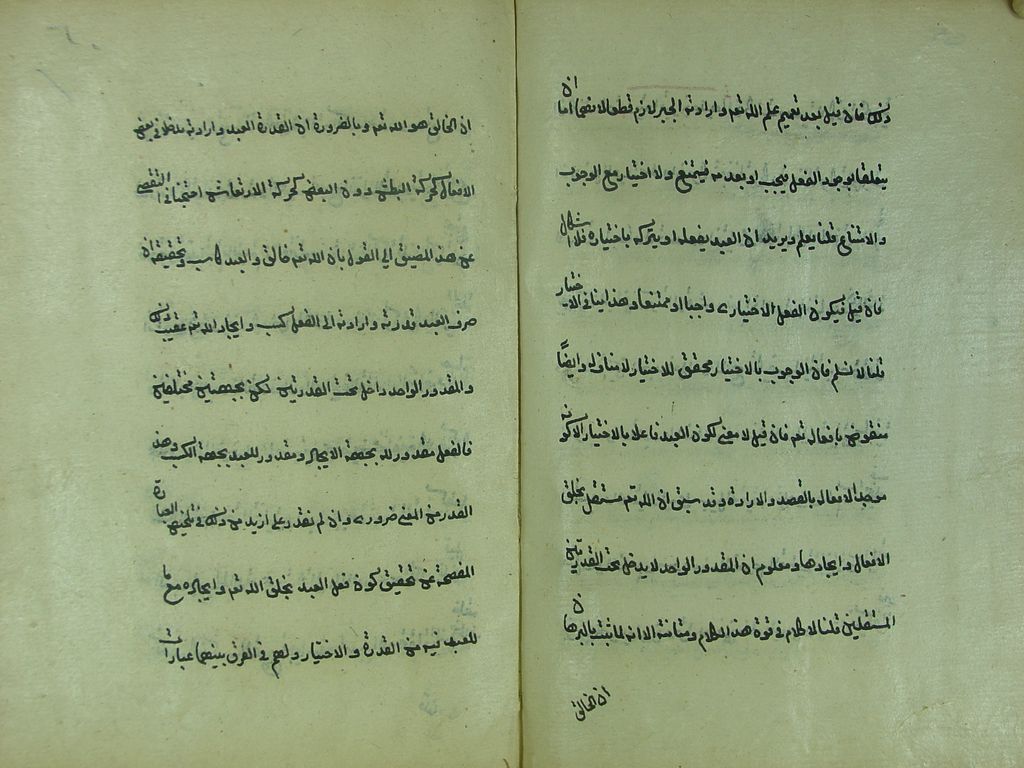 ذلك فان قيل بعد تعميم علم الله تعه وارادته الجبر لازم قطعا لانهما اما ان
يتعلقا بوجود الفعل فيجب او بعدمه فيمتنع ولا اختيار مع الوجوب
والامتناع قلنا يعلم ويريد ان العبد يفعله او يتركه باختياره فلا اشكال
فان قيل فيكون الفعل الاختياري واجبا او ممتنعا وهذا ينافي الاختيار
قلنا لا نسلم فان الوجوب بالاختيار محقق للاختيار لا مناف له وايضا
منقوض بافعاله تعه فان قيل لا معنى لكون العبد فاعلا بالاختيار الا كونه
موجد الافعاله بالقصد والارادة وقد سبق ان الله تعه مستقل بخلق
الافعال وايجادها ومعلوم ان المقدور الواحد لا يدخل تحت القدرتين
المستقلين قلنا لا كلام في قوة هذا الكلام ومتانته الا انه لما ثبت بالبرهان
ان الخالق
ان الخالق هو الله تعه وبالضرورة ان القدرة العبد وارادته مدخلا في بعض
الافعال كحركة البطش دون البعض كحركة الارتعاش احتجنا في التفصي
عن هذ المضيق الى القول بان الله تعه خالق والعبد كاسب وتحقيقه ان
صرف العبد قدرته وارادته الى الفعل كسب وايجاد الله تعه عقيب ذلك
والمقدور الواحد داخل تحت القدرتين لكن بجهتين مختلفين
فالفعل مقدور لله بجهة الايجاد ومقدور للعبد بجهة الكسب وهذ
القدر من المعنى ضروري وان لم نقدر على ازيد من ذلك في تلخيص العبارة
المفصحة عن تحقيق كون فعل العبد بخلق الله تعه وايجاده مع ما
للعبد فيه من القدرة والاختيار ولهم في الفرق بينهما عبارات